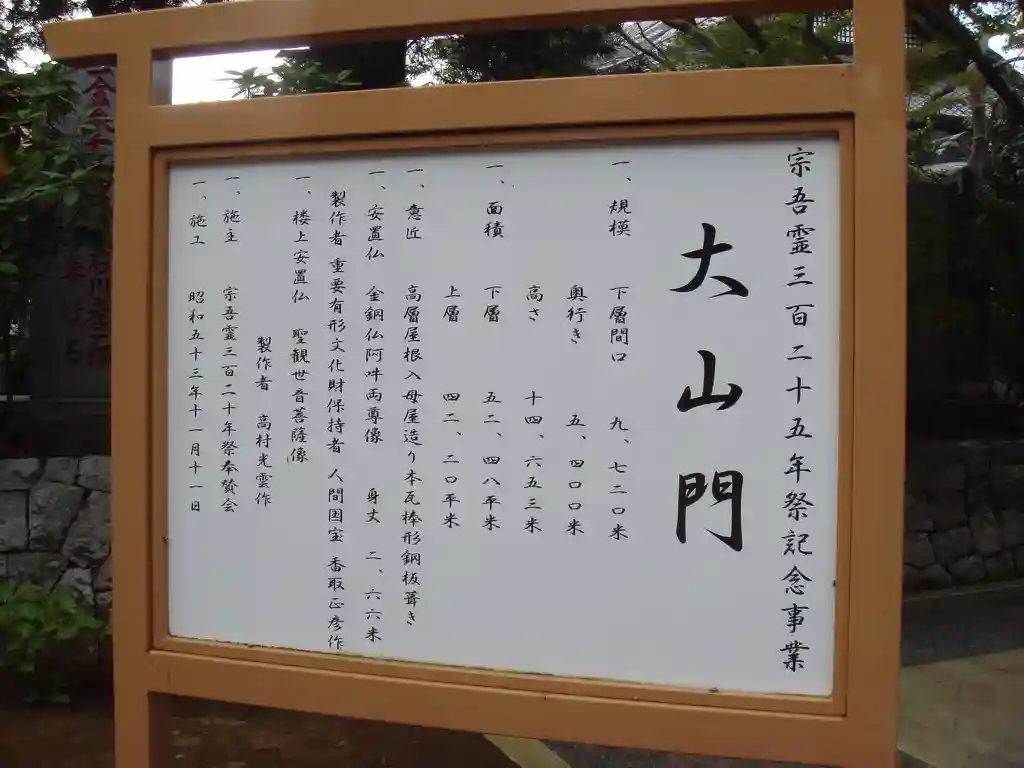 宗吾霊三百二十五年祭記念事業
大山門
一、規模 下層間口 九、七二〇米
奥行き 五、四〇〇米
高さ 十四、六五三米
一、面積 下層 五二、四八平米
上層 四二、二〇平米
一、意匠 高層屋根入母屋造り本瓦棒形銅板葺き
一、安置仏 金銅仏阿吽両尊像 身丈 二、六六米
製作者 重要有形文化財保持者 人間国宝 香取正彦作
一、楼上安置仏 聖観世音菩薩像
製作者 高村光雲作
一、施主 宗吾霊三百二十年祭奉賛会
一、施工 昭和五十三年十一月十一日